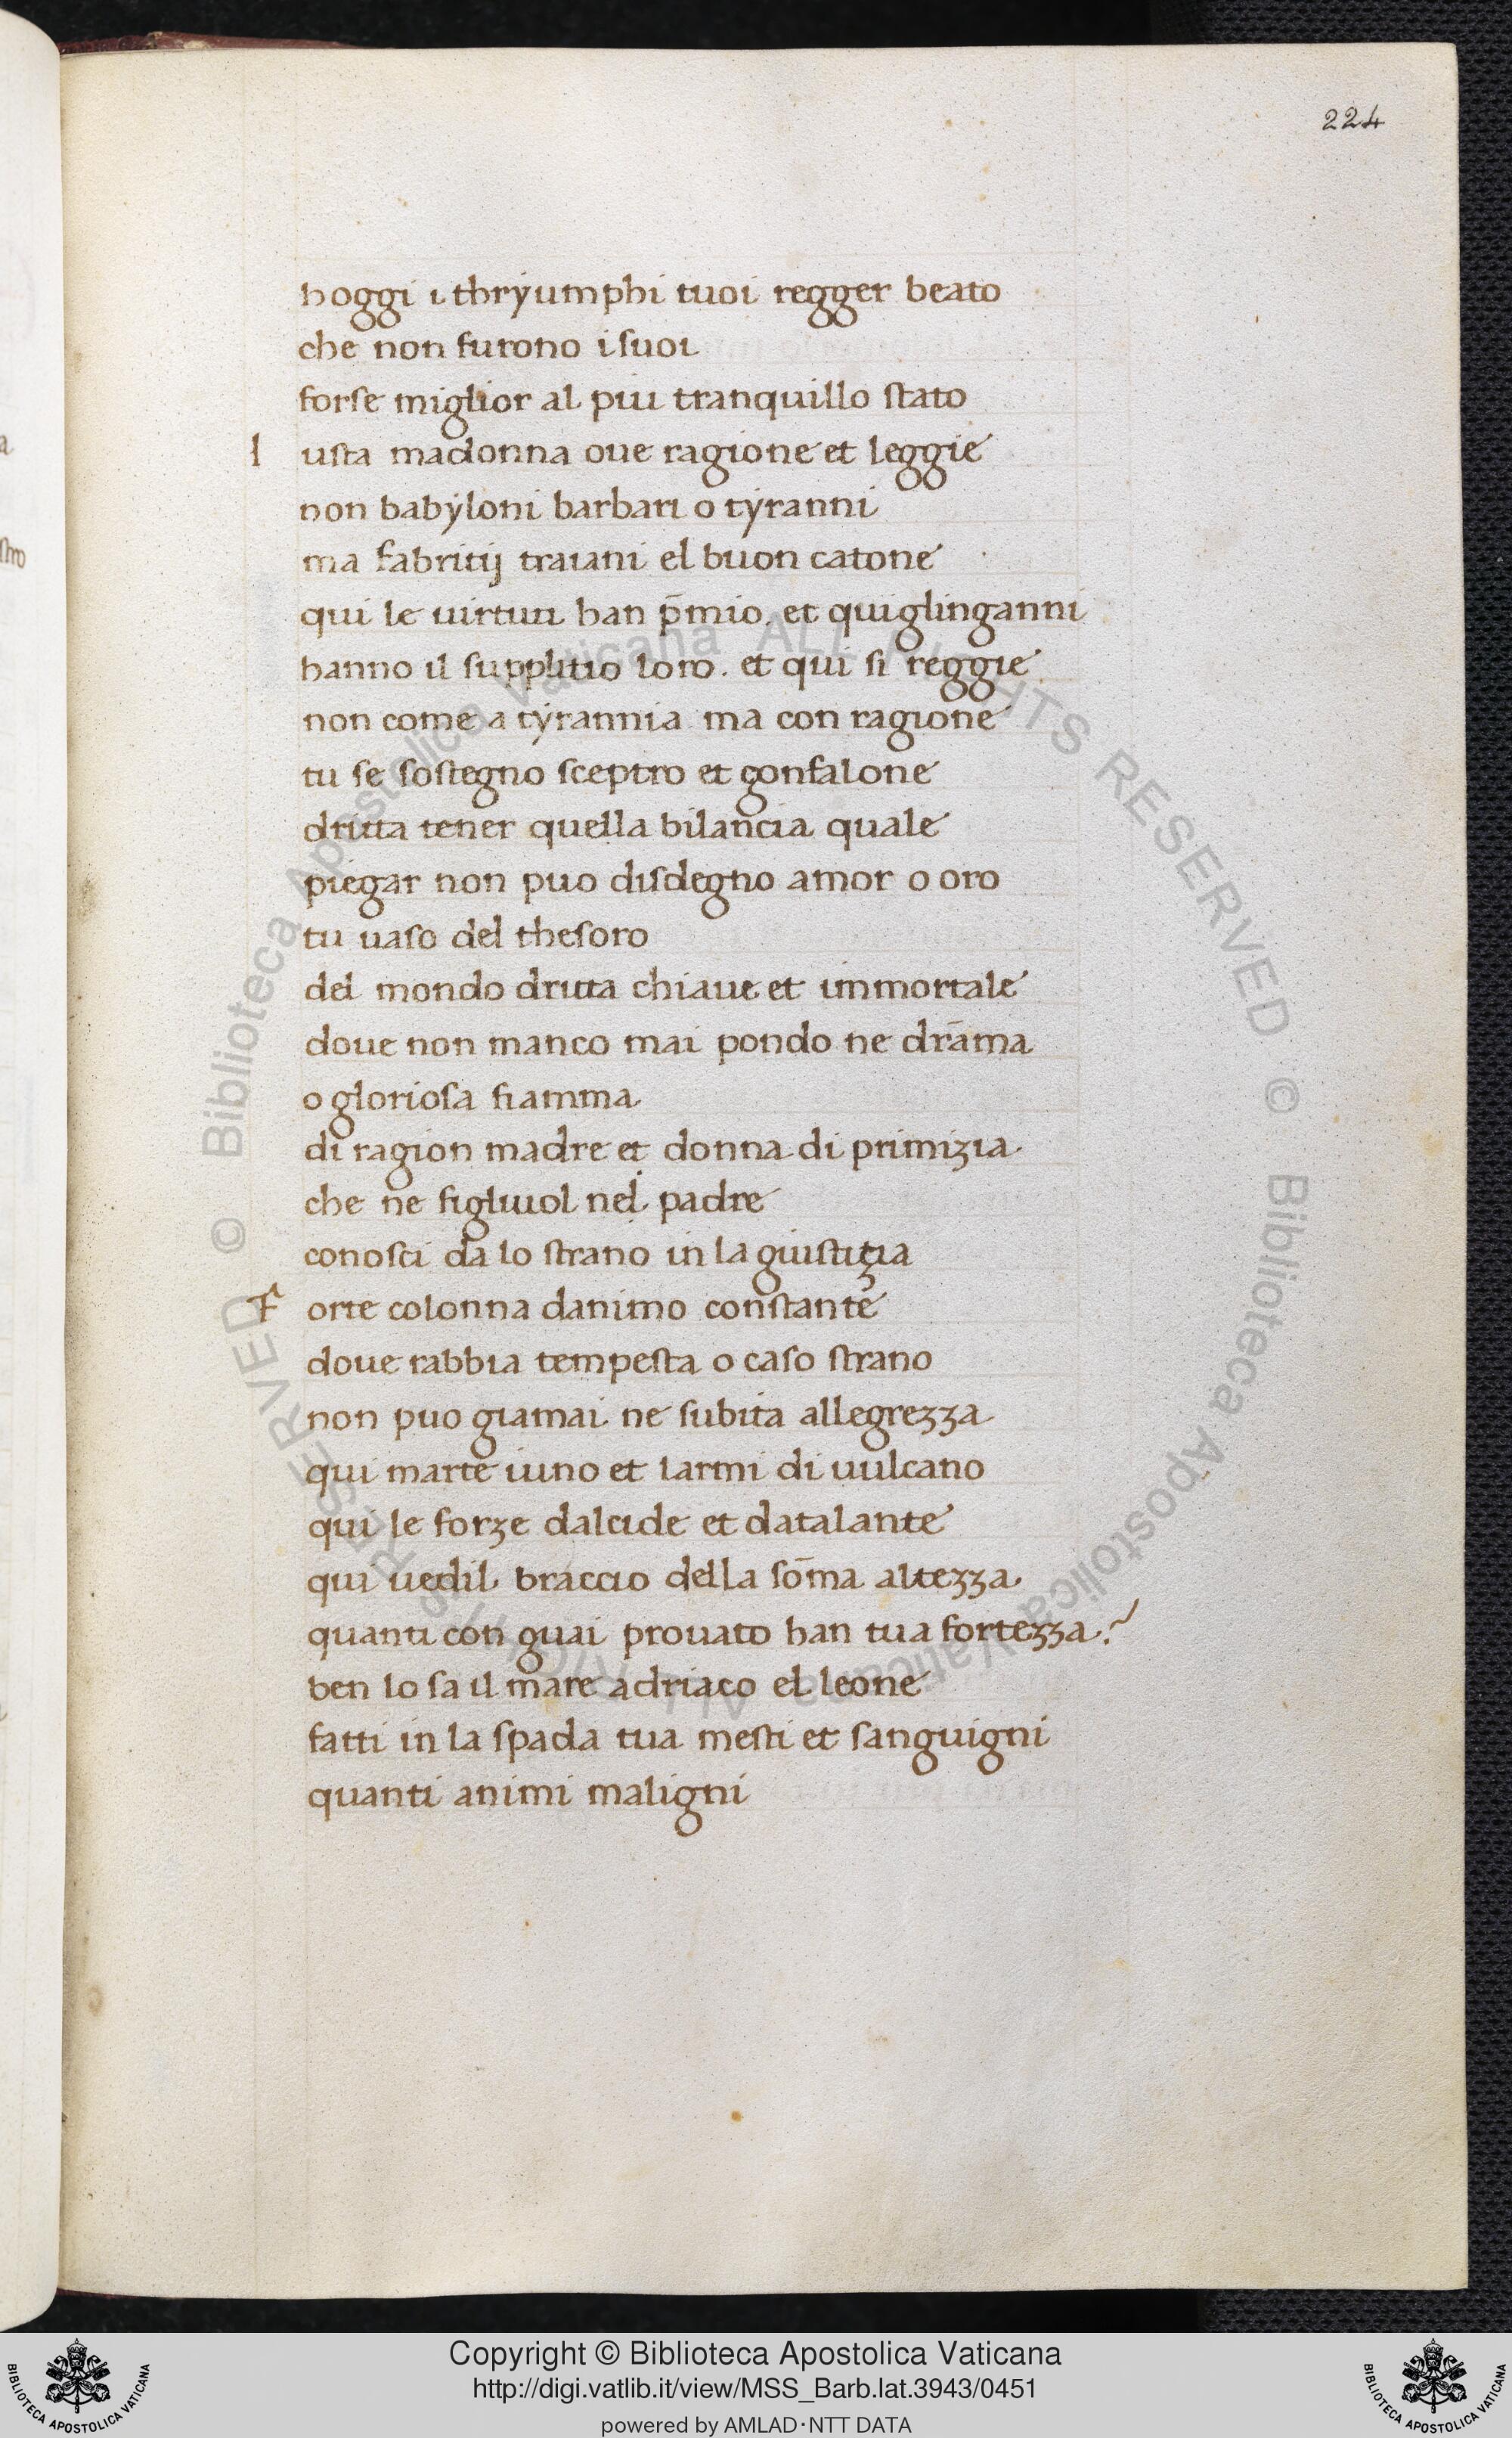 224
hoggi i thryumphi tuoi regger beato
che non furono i suoi
forse miglior al piu tranquillo stato
I usta madonna oue ragione et leggie
non babyloni barbari o tyranni
ma fabritij traiani el buon catone
qui le uirtuti han p̄mio. et quiglinganni
hanno il supplitio loro. et qui si reggie
non come a tyrannia ma con ragione
tu se sostegno sceptro et gonfalone
dritta tener quella bilancia quale
piegar non puo disdegno amor o oro
tu uaso del thesoro
del mondo dritta chiaue et immortale
doue non manco mai pondo ne drāma
o gloriosa fiamma
di ragion madre et donna di primizia
che ne figliuol nel padre
conosci da lo strano in la giustiçia
F orte colonna danimo constante
doue rabbia tempesta o caso strano
non puo giamai ne subita allegrezza
qui marte iuno et larmi di uulcano
qui le forze dalcide et datalante
qui uedil braccio della sōma altezza
quanti con guai prouato han tua fortezza?
ben lo sa il mare adriaco el leone
fatti in la spada tua mesti et sanguigni
quanti animi maligni
© Biblioteca Apostolica Vaticana ALL RIGHTS RESERVED © Biblioteca Apostolica Vaticana ALL RIGHTS RESERVED
Copyright © Biblioteca Apostolica Vaticana
http://digi.vatlib.it/view/MSS_Barb.lat.3943/0451
powered by AMLAD·NTT DATA
BIBLIOTECA APOSTOLICA VATICANA
BIBLIOTECA APOSTOLICA VATICANA